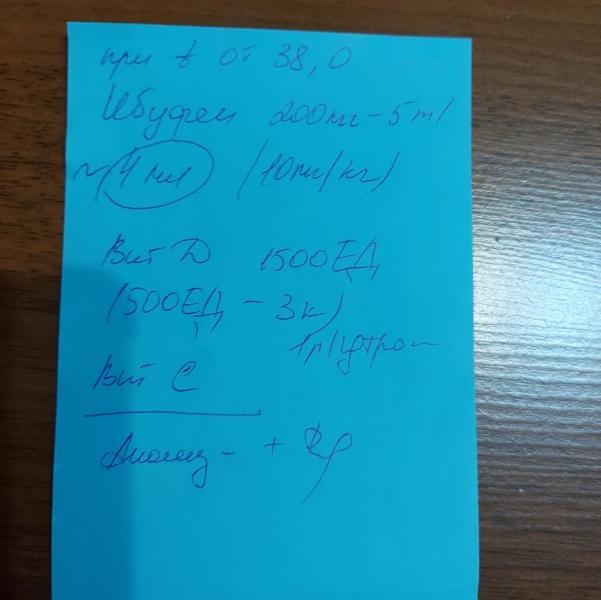 при t от 38,0
Ибуфен 200мг - 5ml
~ 4 мл (10мг/кг)
Вит D 1500ЕД
(500ЕД - 3к)
1р/утром
Вит С
+